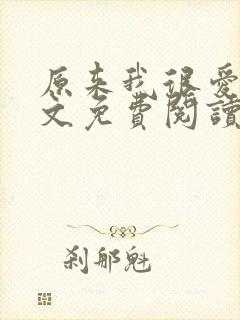 原来我很爱
文免費閱讀
刹那魁